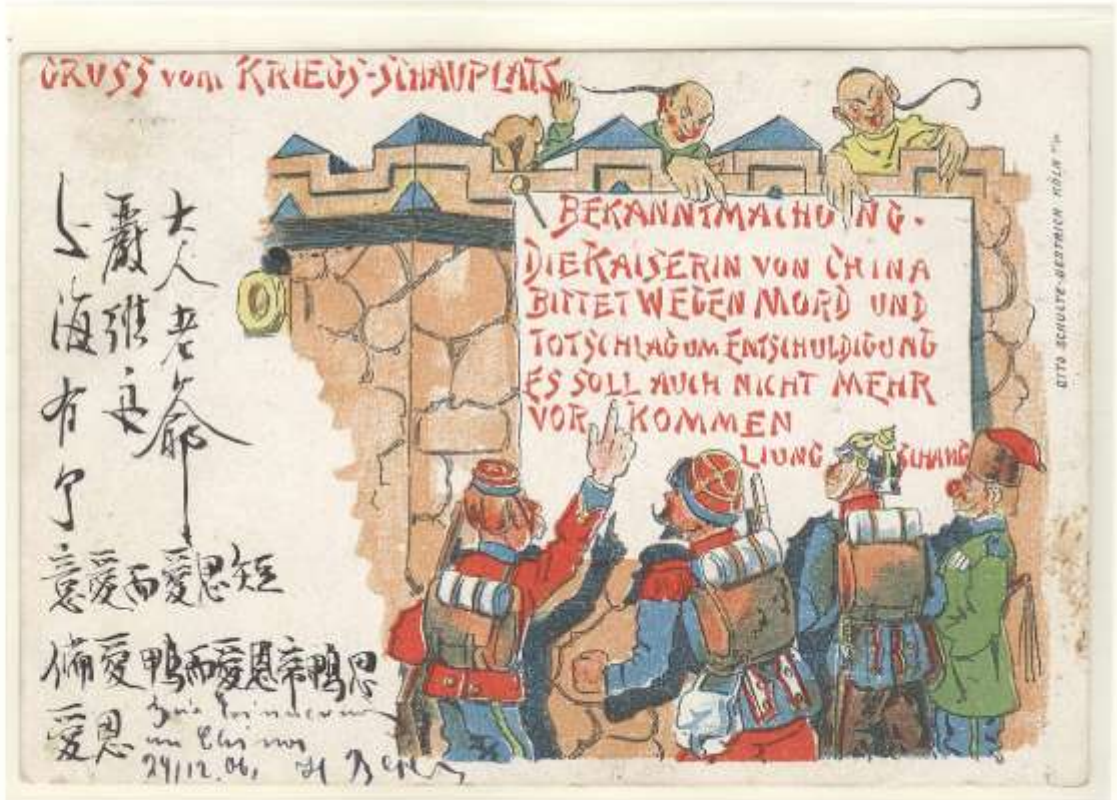 GRUSS vom KRIEGS-SCHAUPLATS
BEKANNTMACHUNG.
DIE KAISERIN VON CHINA
BITTET WEGEN MORD UND
TOTSCHLAG UM ENTSCHULDIGUNG
ES SOLL AUCH NICHT MEHR
VOR KOMMEN
LIUNG SCHANG
OTTO SCHULTE-BERTRICH KÖLN
大人老爺
嚴維
上海有了
意愛而愛思短
備愛鴨而愛恩帝鴨思
愛恩
24/12.06.